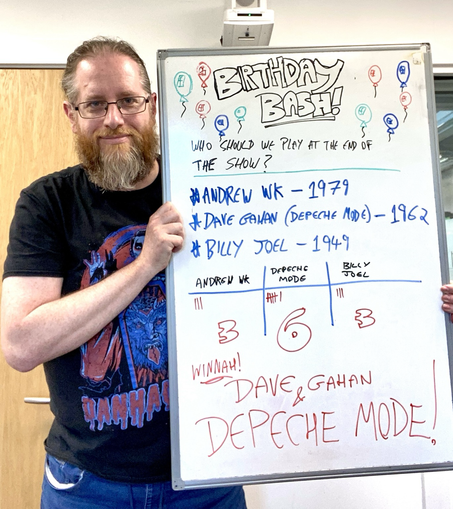 BIRTHDAY
BASH!
WHO SHOULD WE PLAY AT THE END OF
THE SHOW?
#ANDREW WK - 1979
#DAVE GAHAN (DEPECHE MODE) - 1962
#BILLY JOEL - 1949
ANDREW WK DEPECHE MODE BILLY JOEL
3 6 3
WINNAH!
DAVE GAHAN
&
DEPECHE MODE!